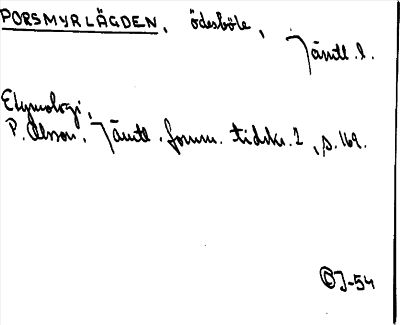 PORSMYRLÄGDEN, ödesböle,
Jämtl. l.
Etymologi,
P. Olsson, Jämtl. fornm. tidskr. 1, s. 169.
© J-54